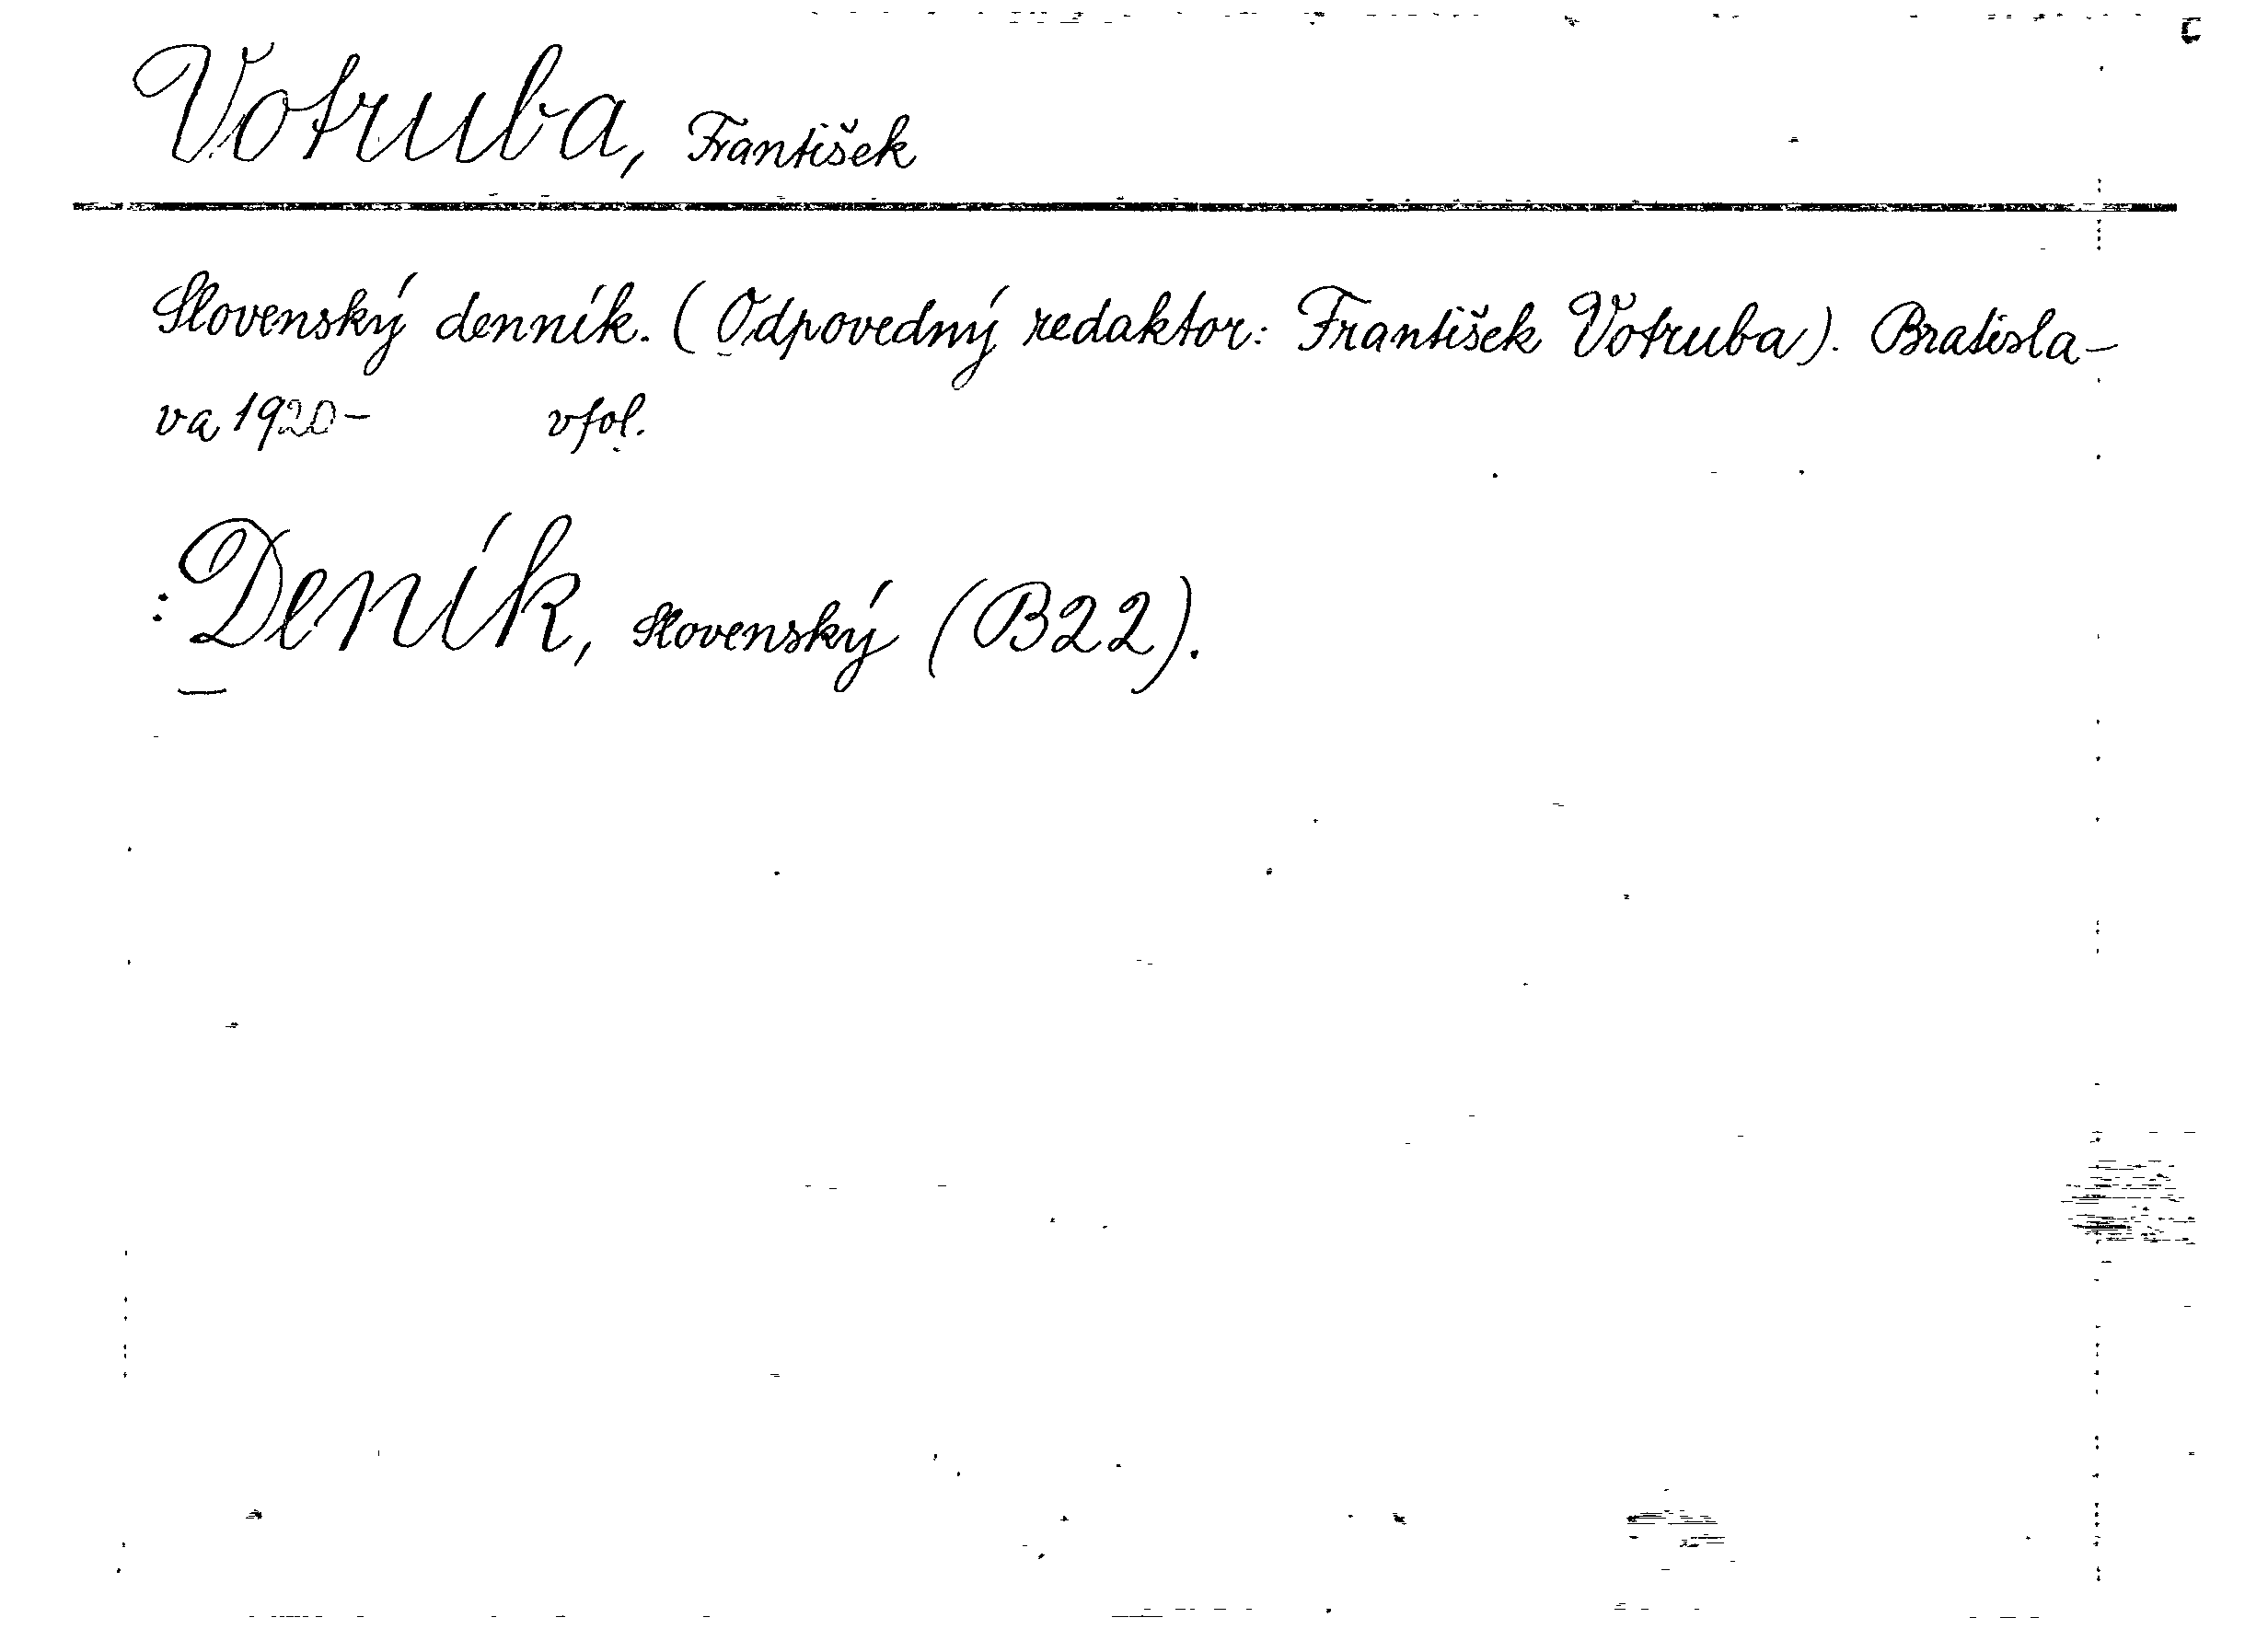 Votruba, František
Slovenský denník. (Odpovedný redaktor: František Votruba). Bratisla-
va 1920- vfol.
: Deník, slovenský (B22).